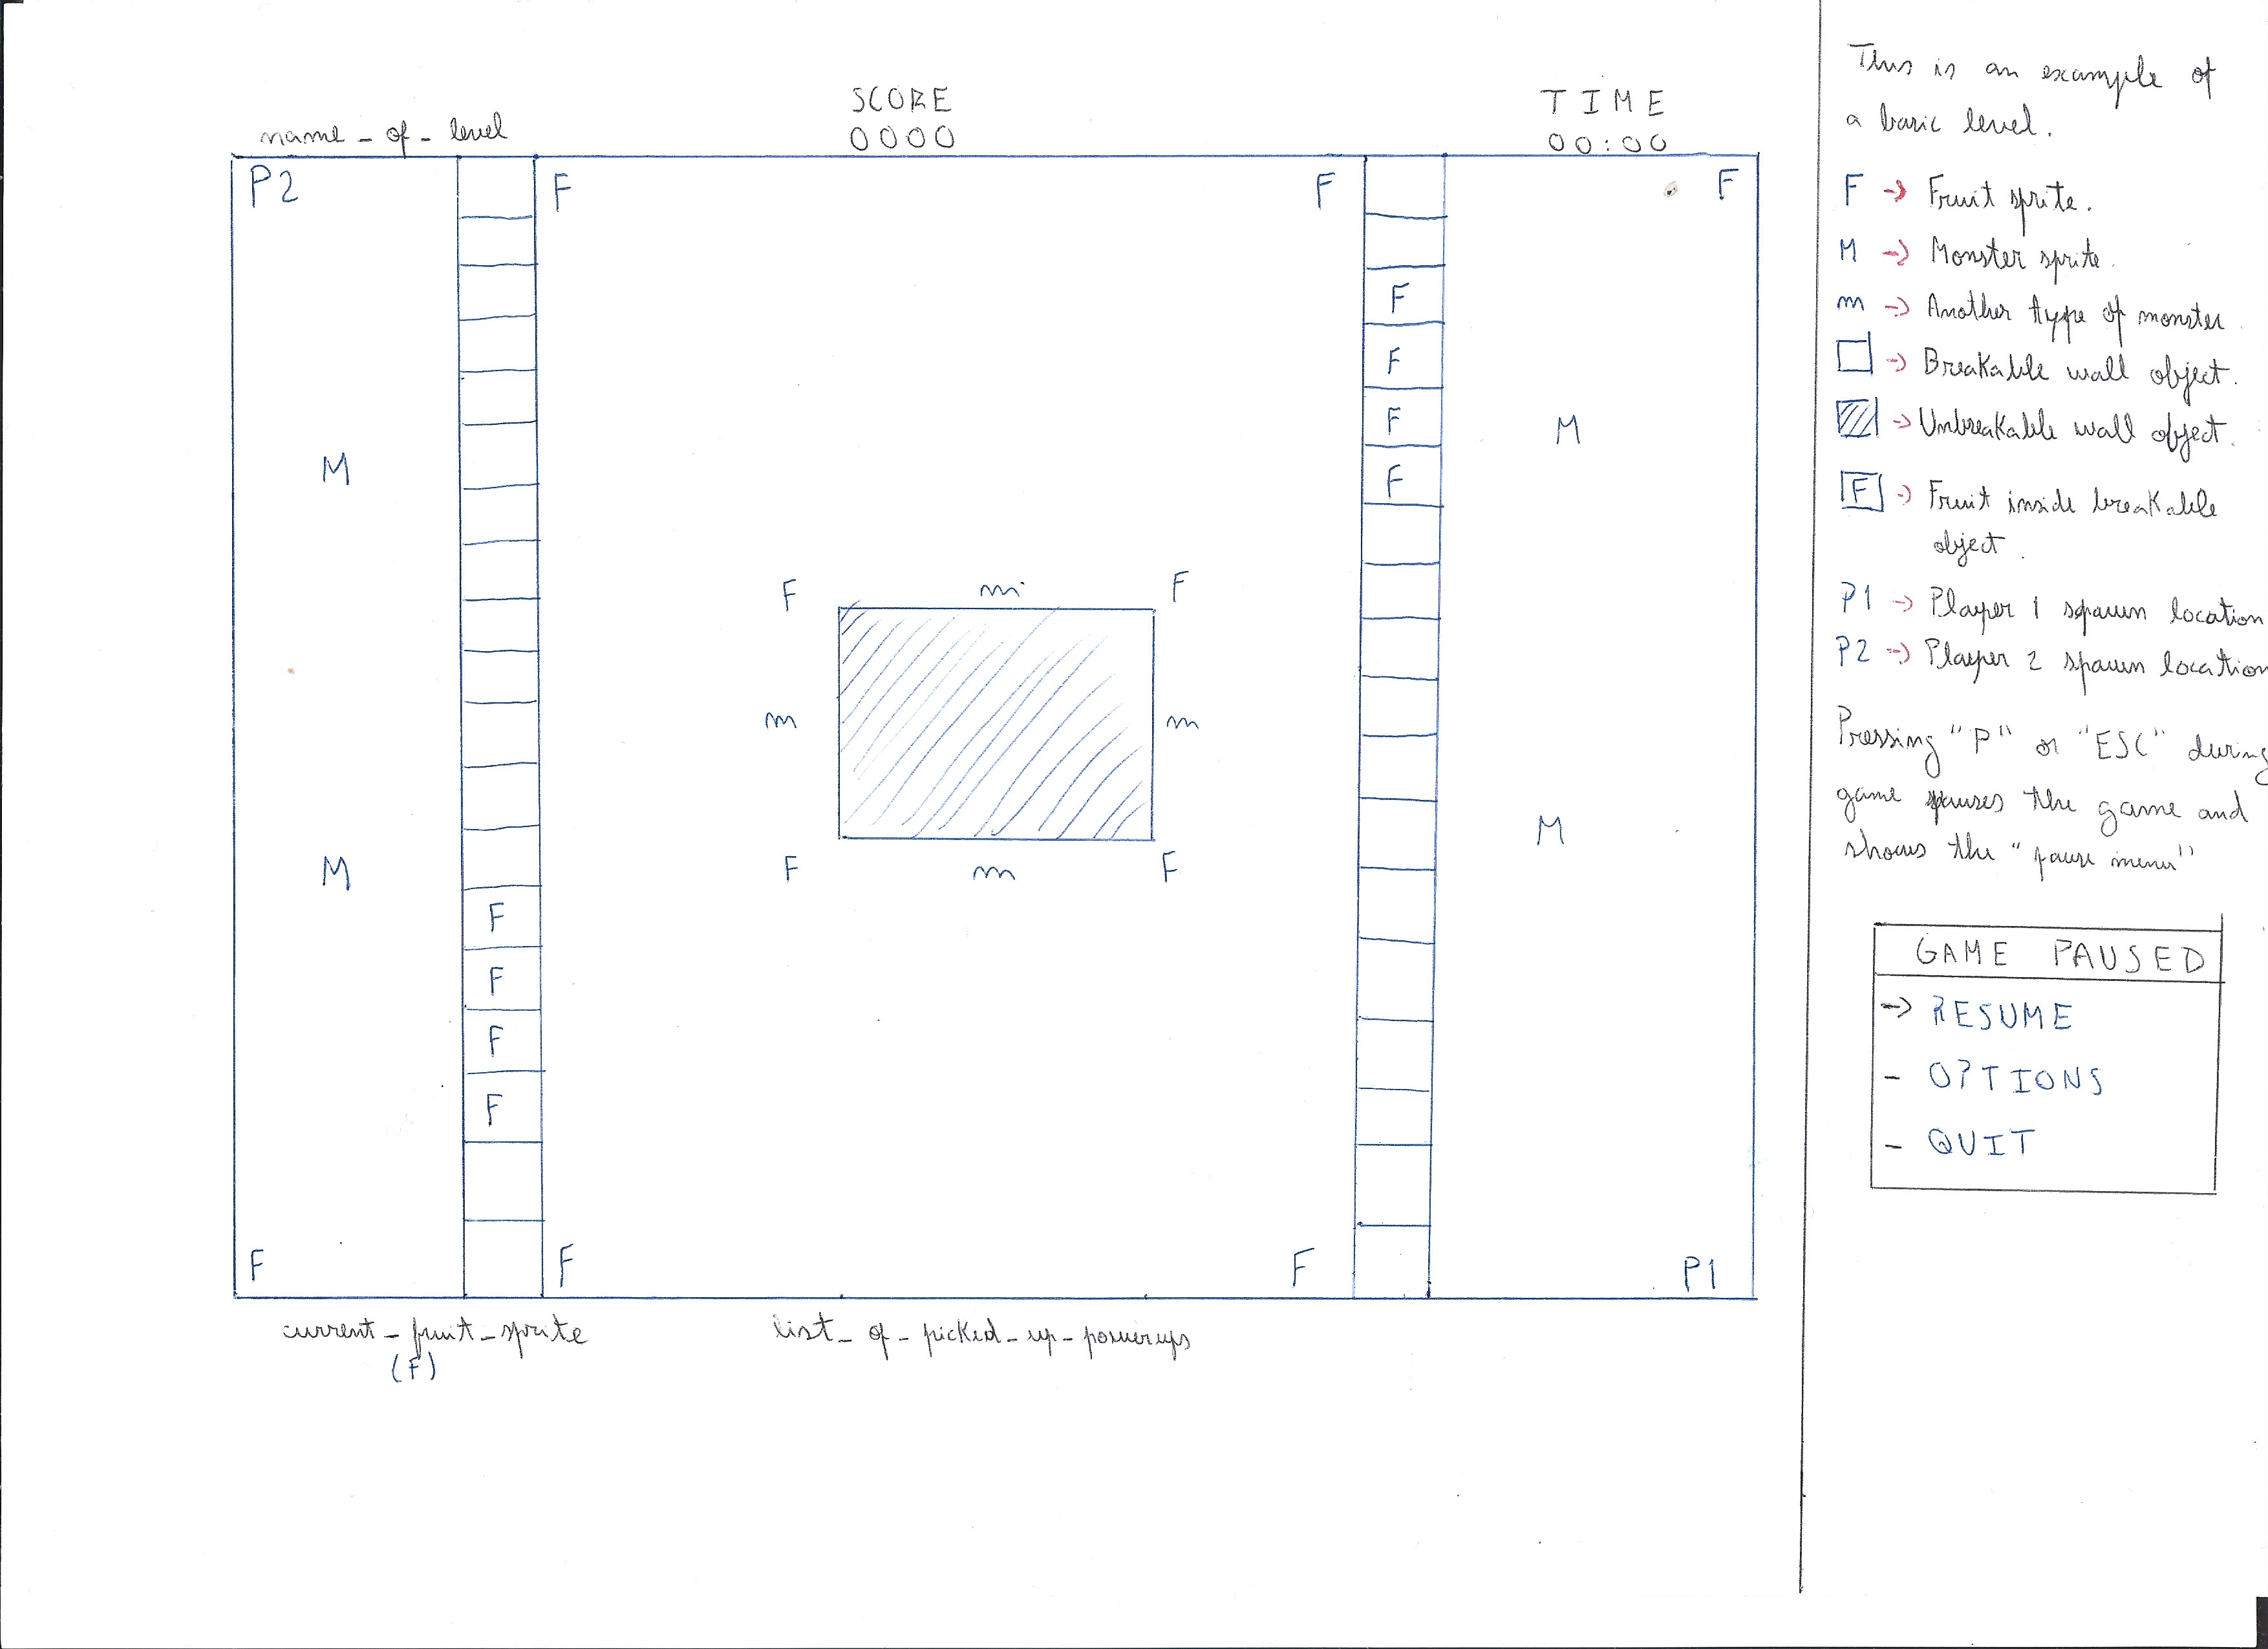 name_of_level
SCORE
0000
TIME
00:00
P2
F
F
F
F
F
F
F
M
M
F
m
F
m
m
M
M
F
m
F
F
F
F
F
F
F
F
P1
current_fruit_sprite
(F)
list_of_picked_up_powerups
This is an example of
a basic level.
F -> Fruit sprite.
M -> Monster sprite.
m -> Another type of monster
-> Breakable wall object.
-> Unbreakable wall object.
F -> Fruit inside breakable
object.
P1 -> Player 1 spawn location
P2 -> Player 2 spawn location
Pressing "P" or "ESC" during
game pauses the game and
shows the "pause menu"
GAME PAUSED
-> RESUME
- OPTIONS
- QUIT